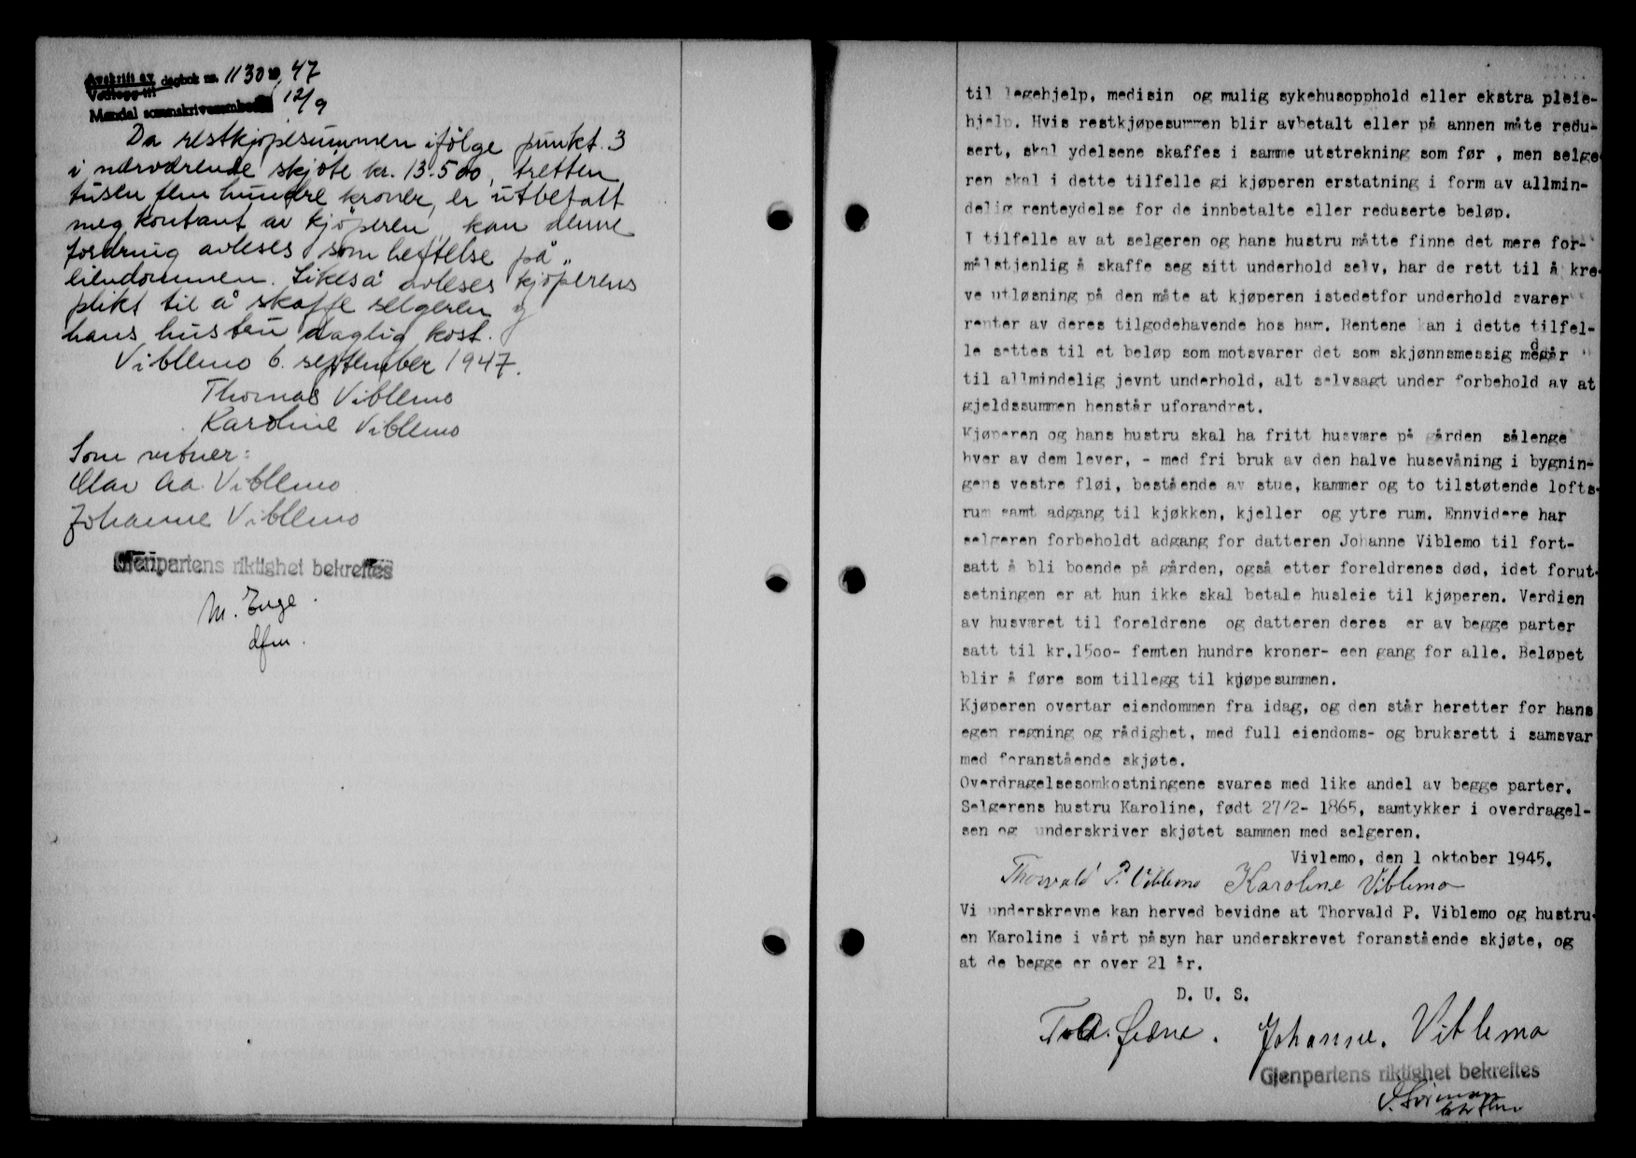 Avskrift av dagbok nr. 1130 19 47
Vedlegg til 12/9
Mandal sorenskriverembede
Da restkjøpesummen ifølge punkt. 3
i nærværende skjøte kr. 13.500, tretten
tusen fem hundre kroner, er utbetalt
meg kontant av kjøperen, kan denne
fordring avleses som heftelse på
eiendommen. Likeså avleses kjøperens
plikt til å skaffe selgeren og
hans hustru daglig kost.
Viblemo 6. september 1947.
Thomas Viblemo
Karoline Viblemo
Som vitner:
Olav Aa. Viblemo
Johanne Viblemo
Gjenpartens riktighet bekreftes
M. Enge.
dfm.
til legehjelp, medisin og mulig sykehusopphold eller ekstra pleie-
hjelp. Hvis restkjøpesummen blir avbetalt eller på annen måte redu-
sert, skal ydelsene skaffes i samme utstrekning som før , men selge-
ren skal i dette tilfelle gi kjøperen erstatning i form av allmin-
delig renteydelse for de innbetalte eller reduserte beløp.
I tilfelle av at selgeren og hans hustru måtte finne det mere for-
målstjenlig å skaffe seg sitt underhold selv, har de rett til å kre-
ve utløsning på den måte at kjøperen istedetfor underhold svarer
renter av deres tilgodehavende hos ham. Rentene kan i dette tilfel-
le settes til et beløp som motsvarer det som skjønnsmessig medgår
til allmindelig jevnt underhold, alt selvsagt under forbehold av at
gjeldssummen henstår uforandret.
Kjøperen og hans hustru skal ha fritt husvære på gården sålenge
hver av dem lever, - med fri bruk av den halve husevåning i bygnin-
gens vestre fløi, bestående av stue, kammer og to tilstøtende lofts-
rum samt adgang til kjøkken, kjeller og ytre rum. Ennvidere har
selgeren forbeholdt adgang for datteren Johanne Viblemo til fort-
satt å bli boende på gården, også etter foreldrenes død, idet forut-
setningen er at hun ikke skal betale husleie til kjøperen. Verdien
av husværet til foreldrene og datteren deres er av begge parter
satt til kr.15oo- femten hundre kroner- een gang for alle. Beløpet
blir å føre som tillegg til kjøpesummen.
Kjøperen overtar eiendommen fra idag, og den står heretter for hans
egen regning og rådighet, med full eiendoms- og bruksrett i samsvar
med foranstående skjøte.
Overdragelsesomkostningene svares med like andel av begge parter.
Selgerens hustru Karoline, født 27/2- 1865, samtykker i overdragel-
sen og underskriver skjøtet sammen med selgeren.
Vivlemo, den 1 oktober 1945.
Thorvald P. Viblemo Karoline Viblemo
Vi underskrevne kan herved bevidne at Thorvald P. Viblemo og hustru-
en Karoline i vårt påsyn har underskrevet foranstående skjøte, og
at de begge er over 21 år.
D. U. S.
Johanne. Viblemo
Gjenpartens riktighet bekreftes